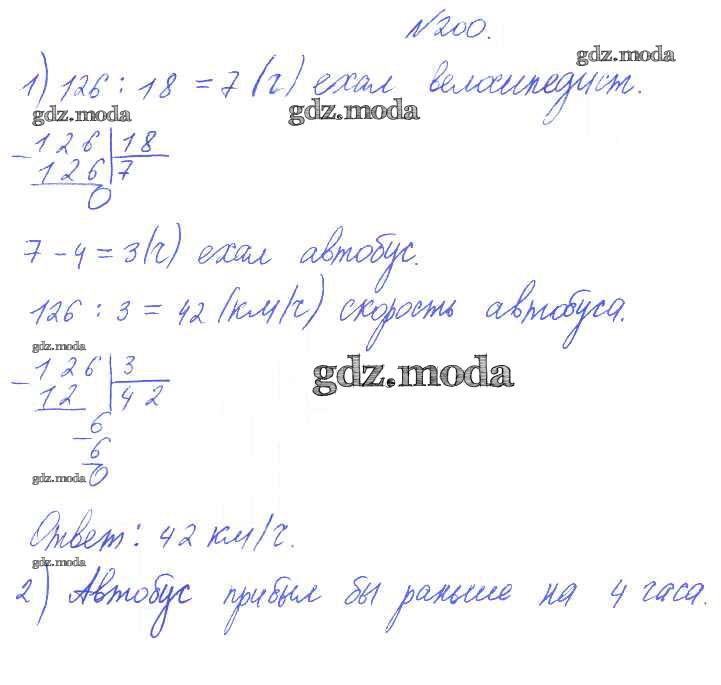 №200.
gdz.moda
1) 126 : 18 = 7 (ч) ехал велосипедист.
gdz.moda gdz.moda
- 126 | 18
126 | 7
0
7 - 4 = 3 (ч) ехал автобус.
126 : 3 = 42 (км/ч) скорость автобуса.
gdz.moda
- 126 | 3
12 | 42
gdz.moda
- 6
6
gdz.moda 0
Ответ: 42 км/ч.
gdz.moda
2) Автобус прибыл бы раньше на 4 часа.